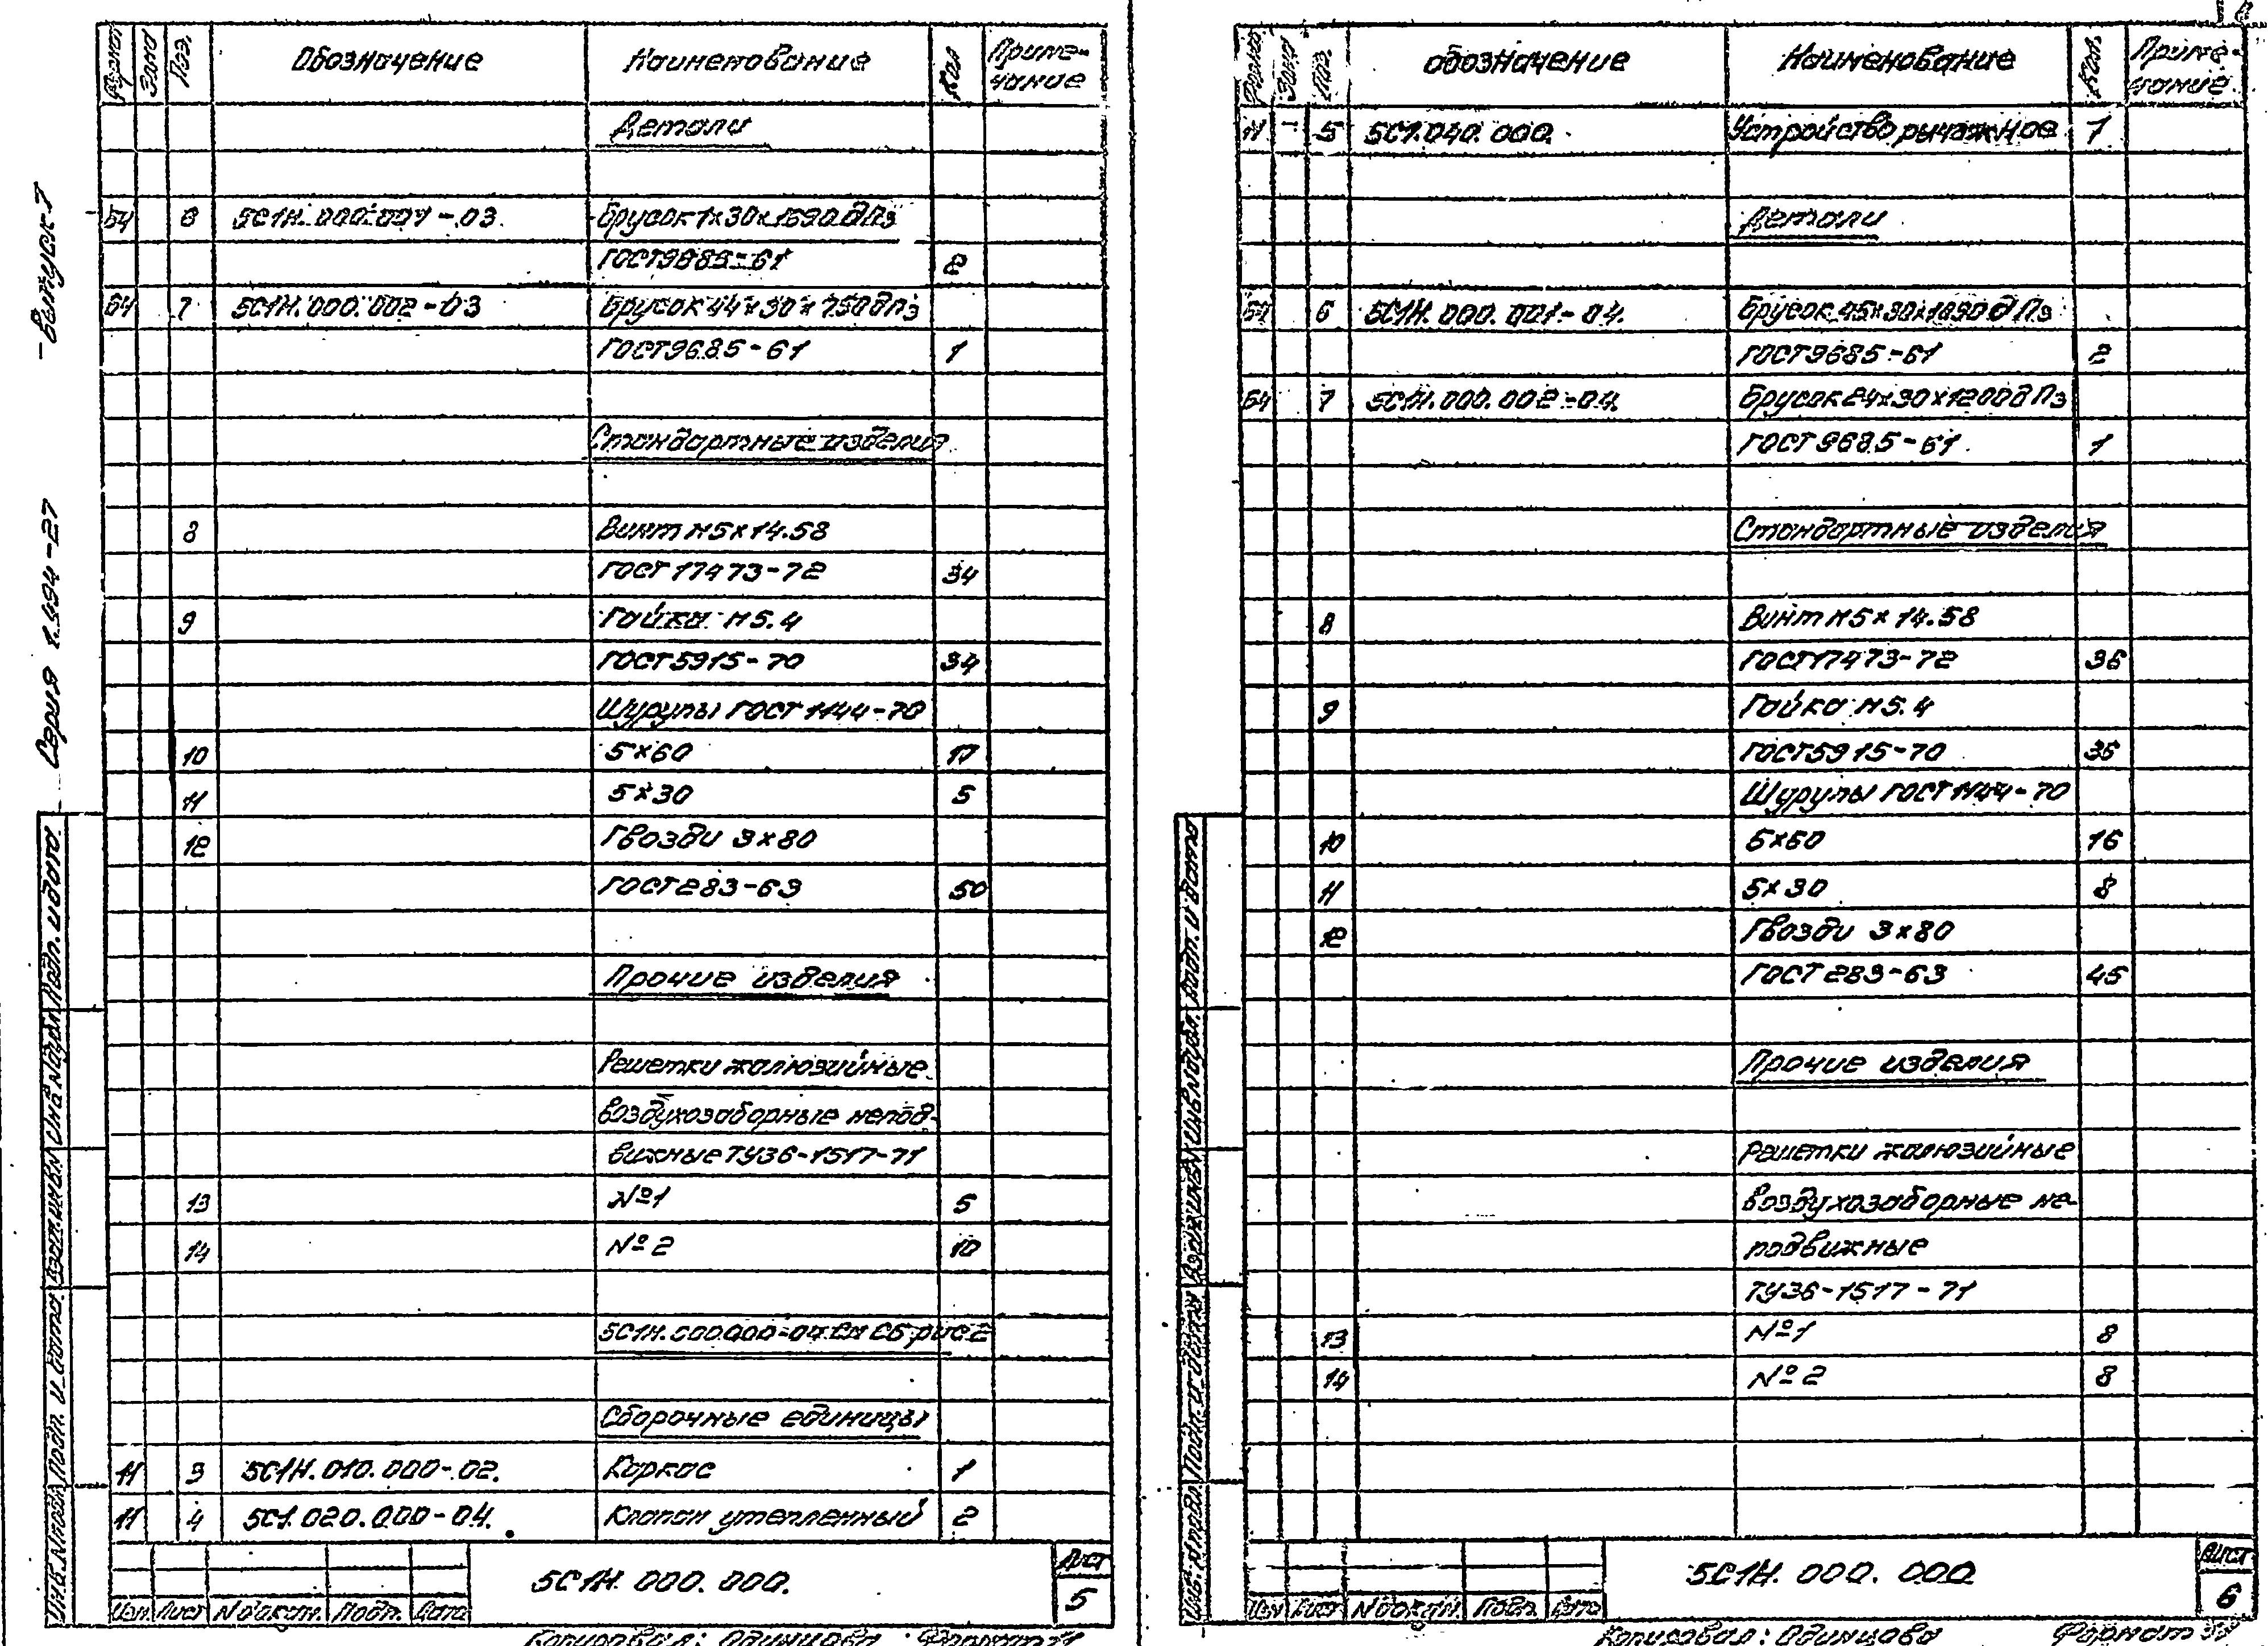 Формат Зона Поз. Обозначение Наименование Кол Приме-
чание
Детали
БЧ 6 5С1Н.000.001-03. Брусок 1х30х1690 д Пз
ГОСТ9685-61 2
БЧ 7 5С1Н.000.002-03 Брусок 44х30х750 д Пз
ГОСТ9685-61 1
Стандартные изделия
8 Винт М5х14.58
ГОСТ 17473-72 34
9 Гайка М5.4
ГОСТ5915-70 34
Шурупы ГОСТ 1144-70
10 5х60 17
11 5х30 5
12 Гвозди 3х80
ГОСТ283-63 50
Прочие изделия
Решетки жалюзийные
воздухозаборные непод-
вижные ТУ36-1517-71
13 №1 5
14 №2 10
5С1Н.000.000-04 См СБ рис.2
Сборочные единицы
11 3 5С1Н.010.000-02. Каркас 1
11 4 5С1.020.000-04. Клапан утепленный 2
5С1Н.000.000.
Лист
5
Изм. Лист № докум. Подп. Дата
Копировал: Одинцова Формат 11
Серия 1.494-27
-выпуск 7
Инв.№подл. Подп. и дата. Взам.инв.№ Инв.№дубл. Подп. и дата.
Формат Зона Поз. Обозначение Наименование Кол. Приме-
чание.
11 5 5С1.040.000. Устройство рычажное 1
Детали
БЧ 6 5С1Н.000.001-04. Брусок 45х30х1690 д Пз
ГОСТ9685-61 2
БЧ 7 5С1Н.000.002-04. Брусок 24х30х1200 д Пз
ГОСТ 9685-61. 1
Стандартные изделия
8 Винт М5х14.58
ГОСТ17473-72 36
9 Гайка М5.4
ГОСТ5915-70 36
Шурупы ГОСТ 1144-70
10 5х60 16
11 5х30 8
12 Гвозди 3х80
ГОСТ 283-63 45
Прочие изделия
Решетки жалюзийные
воздухозаборные не-
подвижные
ТУ36-1517-71
13 №1 8
14 №2 8
5С1Н.000.000
Лист
6
Изм Лист № докум. Подп. Дата
Копировал: Одинцова Формат 11
Инв.№подл. Подп. и дата Взам.инв.№ Инв.№дубл. Подп. и дата